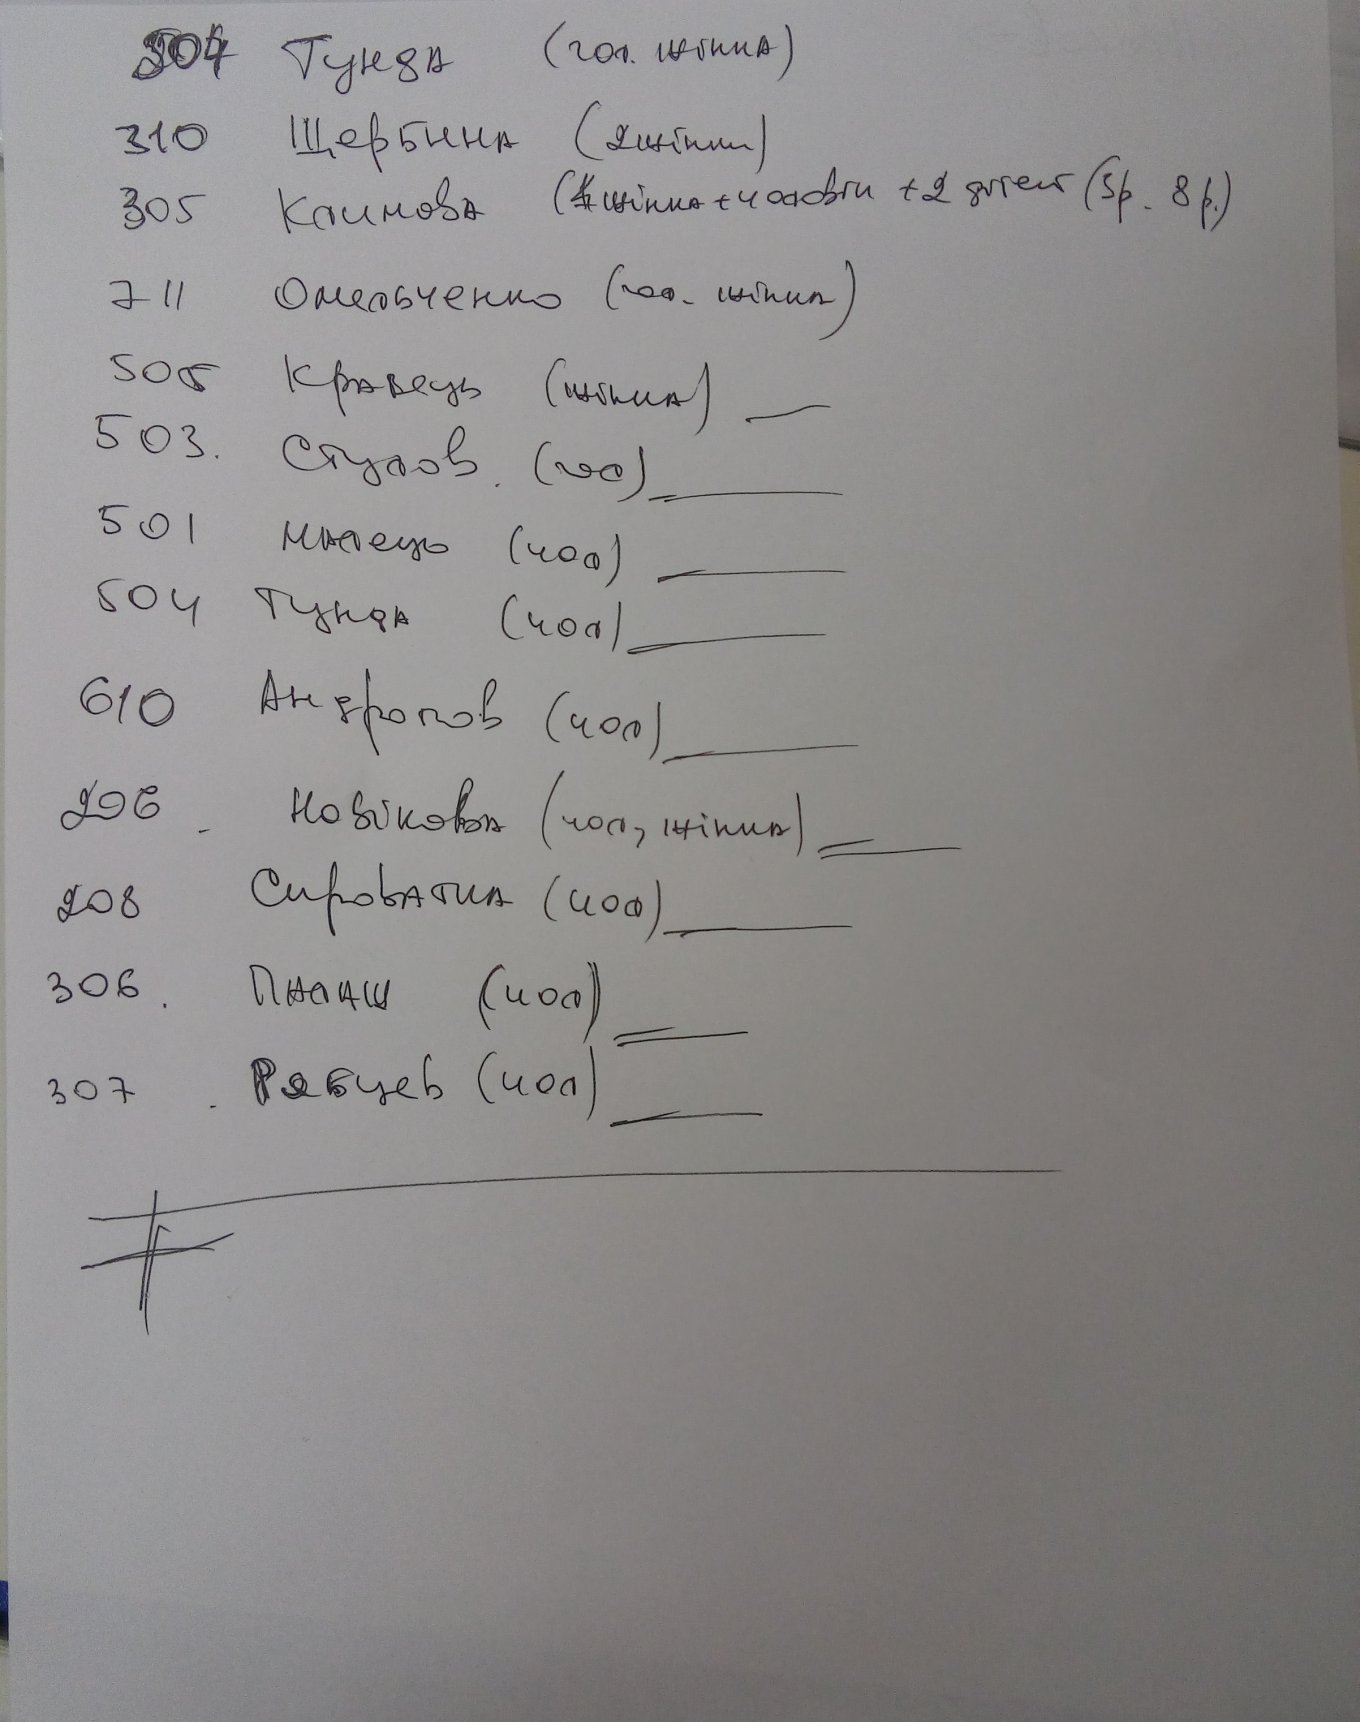 504 Тунда (чол. жінка)
310 Щербина (2 жінки)
305 Климова (1 жінка + чоловік + 2 дітей (5р. 8р.)
711 Омельченко (чол. жінка)
505 Кравець (жінка)
503. Стулов. (чол)
501 Малець (чол)
504 Тунда (чол)
610 Андропов (чол)
206. Новікова (чол, жінка)
208 Сироватка (чол)
306. Палаш (чол)
307. Рябцев (чол)